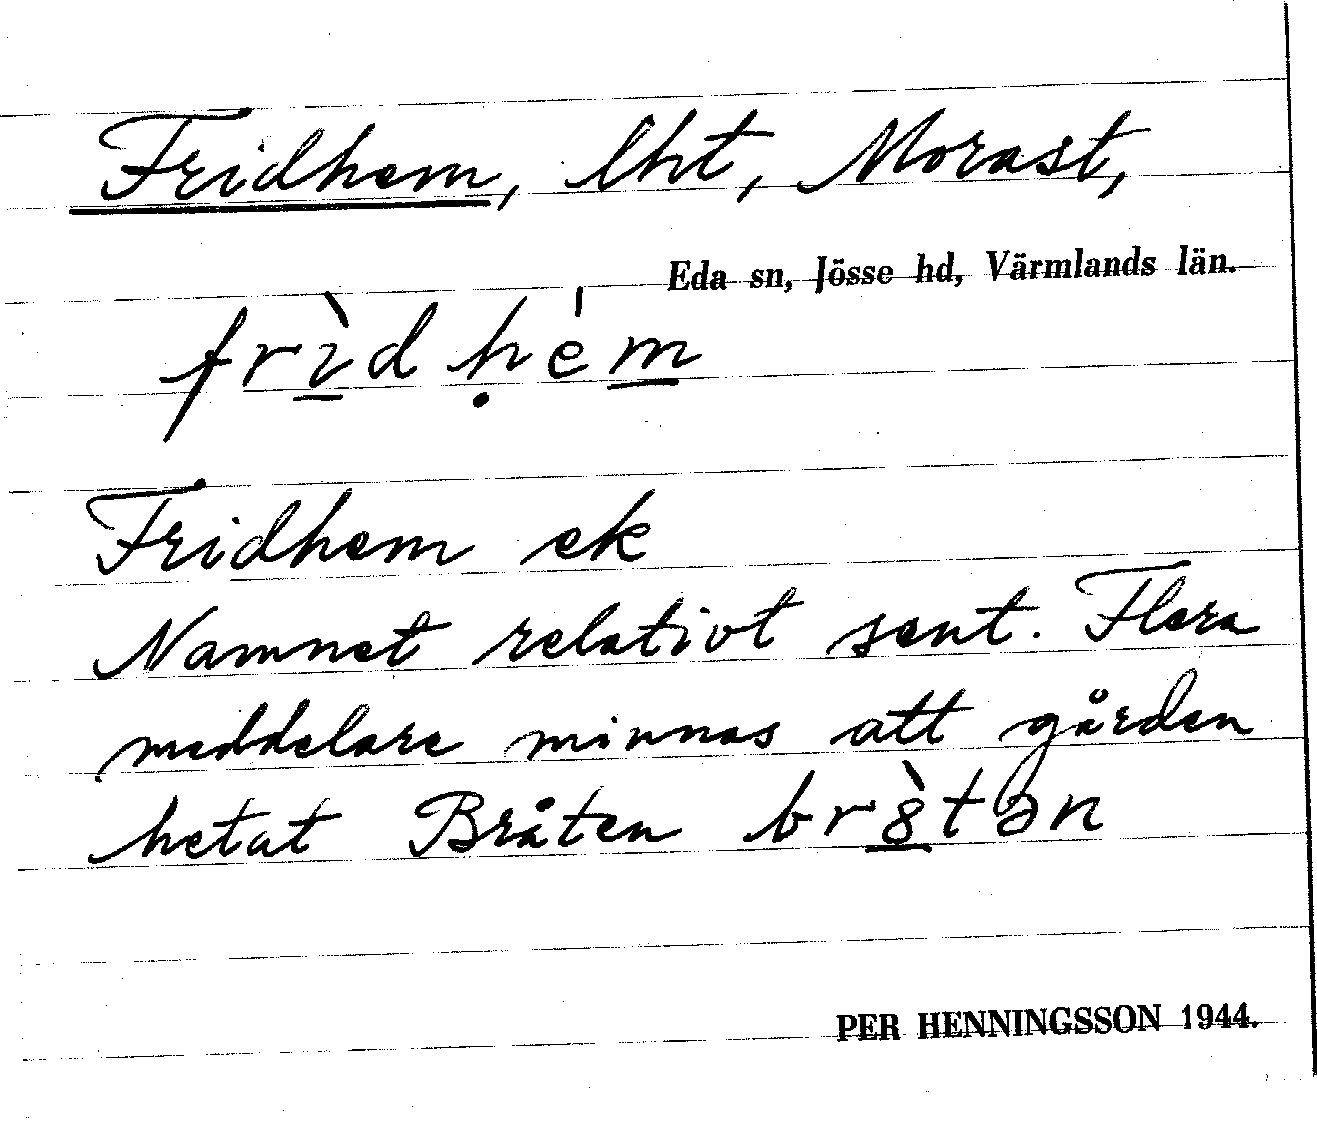 Fridhem, lht, Morast,
Eda sn, Jösse hd, Värmlands län.
frìdḥem
Fridhem ek
Namnet relativt sent. Flera
meddelare minnas att gården
hetat Bråten br8̀tən
PER HENNINGSSON 1944.